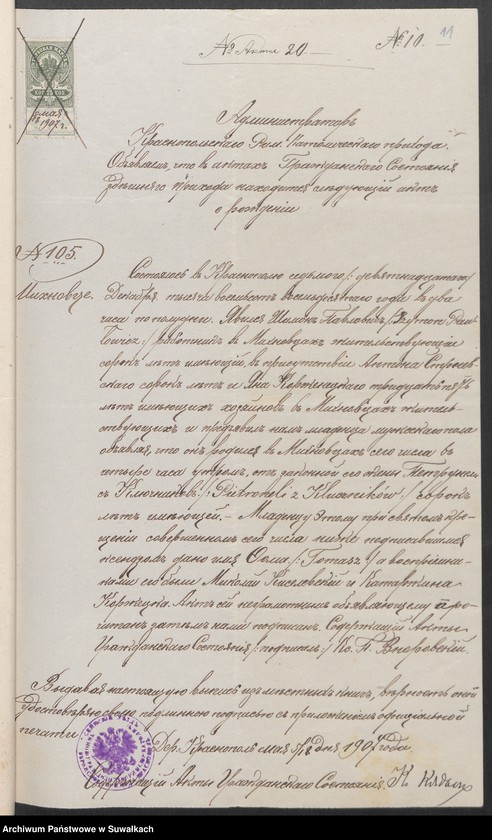 № Акта 20.
№ 10.
11
мая 1907 г.
Администраторъ
Краснопольскаго Рим. Католическаго прихода.
Объявляетъ, что в актахъ Гражданскаго Состоянія
здешняго прихода находится следующій актъ
о рожденіи
№ 105.
Михновце.
Состоялось в Краснополе седьмого /: девятнадцатаго
Декабря, тысяча восемьсотъ года в два
часа пополудни. Явился Шимонъ Павловичъ /: Szymon Paw-
łowicz :/ работникъ в Михновцахъ жительствующій
сорокъ летъ имеющій, в присутствіи Антона
скаго сорокъ летъ и Яна тридцать
летъ имеющихъ хозяиновъ в Михновцахъ житель-
ствующихъ и предъявилъ намъ младенца мужескаго пола
объявляя, что онъ родился в Михновцахъ сего числа в
четыре часа утромъ, отъ законной его жены Петрунели
съ Ключниковъ /: Pietroneli z Kluczników :/ сорокъ
летъ имеющей. – Младенцу этому при святомъ кре-
щеніи совершенномъ сего числа нижеподписавшимся
ксендзомъ дано имя Ѳома /: Tomasz :/ а воспріемни-
ками его были Миколай Киселевскій и Катаржина
Актъ сей неграмотнымъ объявляющему про-
читанъ затемъ нами подписанъ. Содержащій Акты
Гражданскаго Состоянія /: подписалъ :/ Кс. П.
Выдавая настоящую выпись изъ местныхъ книгъ, верность оной
удостоверяю своею подлинною подписью съ приложеніемъ оффиціальной
печати
Дер. Краснополь мая дня 1907 года.
Содержащій Акты Гражданскаго Состоянія К.
Archiwum Państwowe w Suwałkach